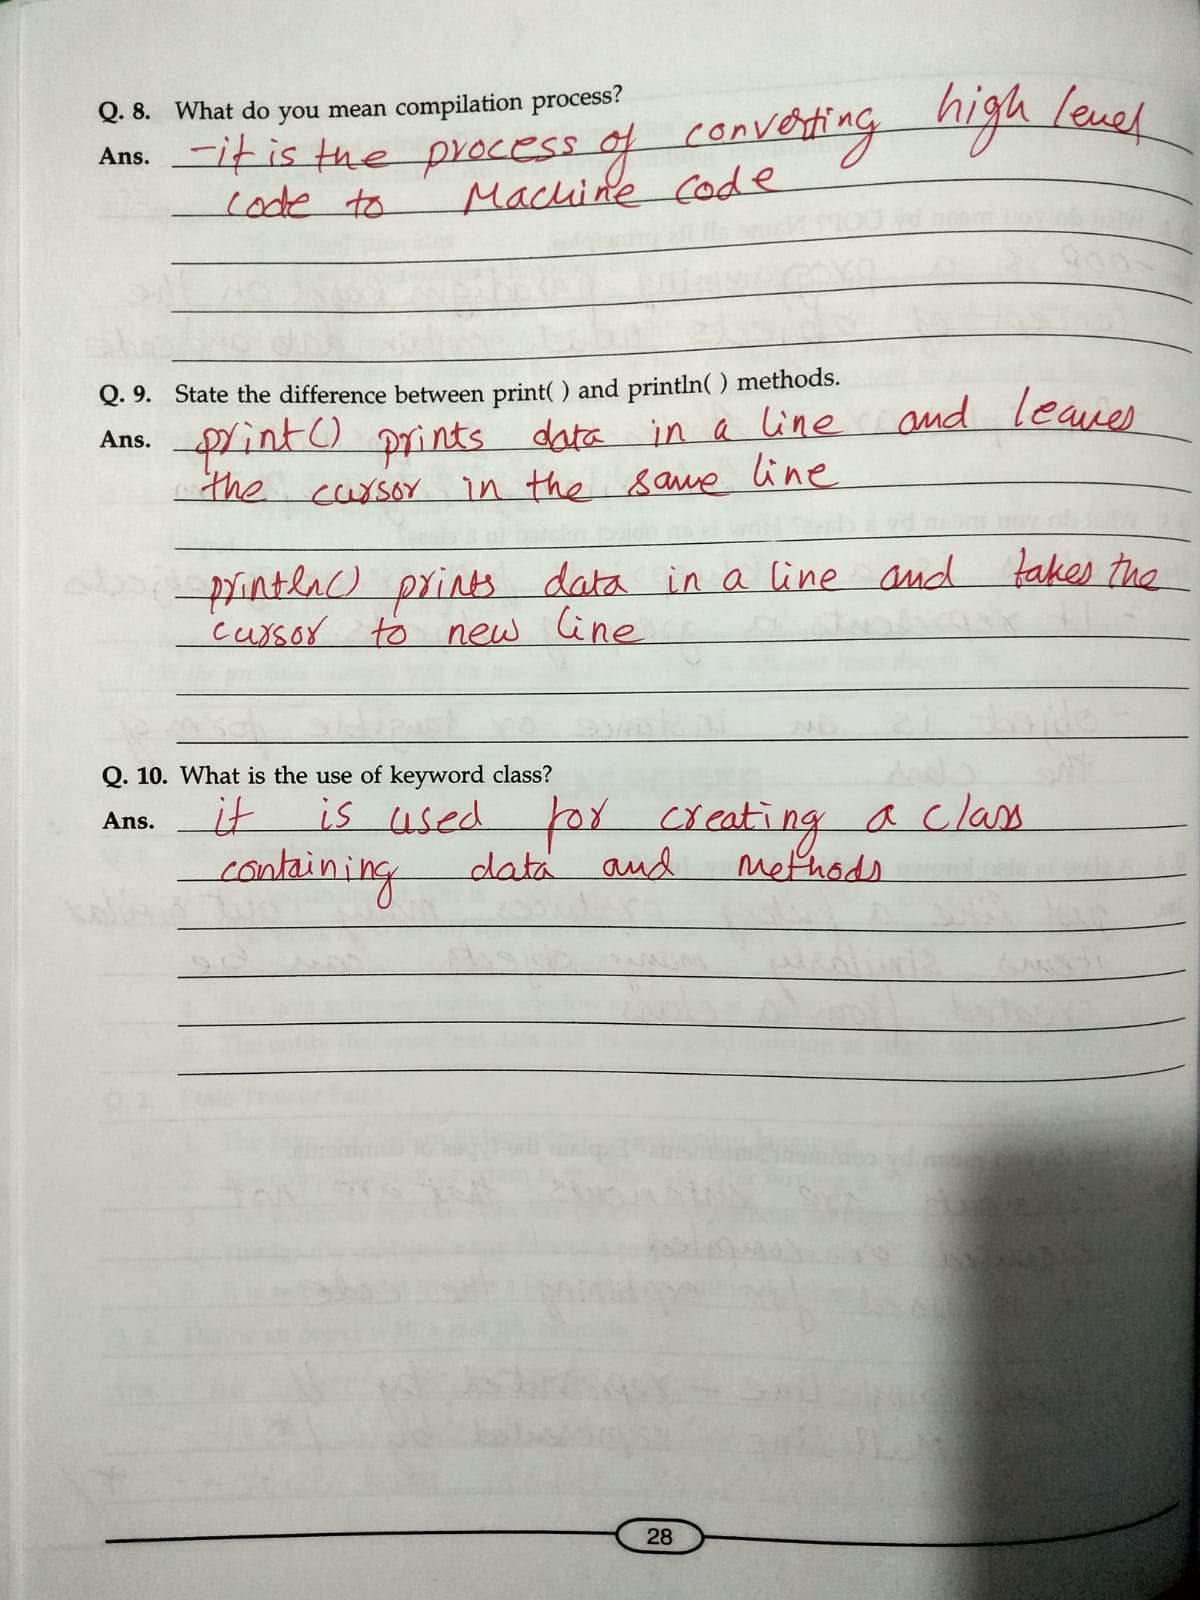 Q. 8. What do you mean compilation process?
Ans. - it is the process of converting high level
code to Machine code
Q. 9. State the difference between print( ) and println( ) methods.
Ans. print() prints data in a line and leaves
the cursor in the same line
println() prints data in a line and takes the
cursor to new line
Q. 10. What is the use of keyword class?
Ans. it is used for creating a class
containing data and methods
28